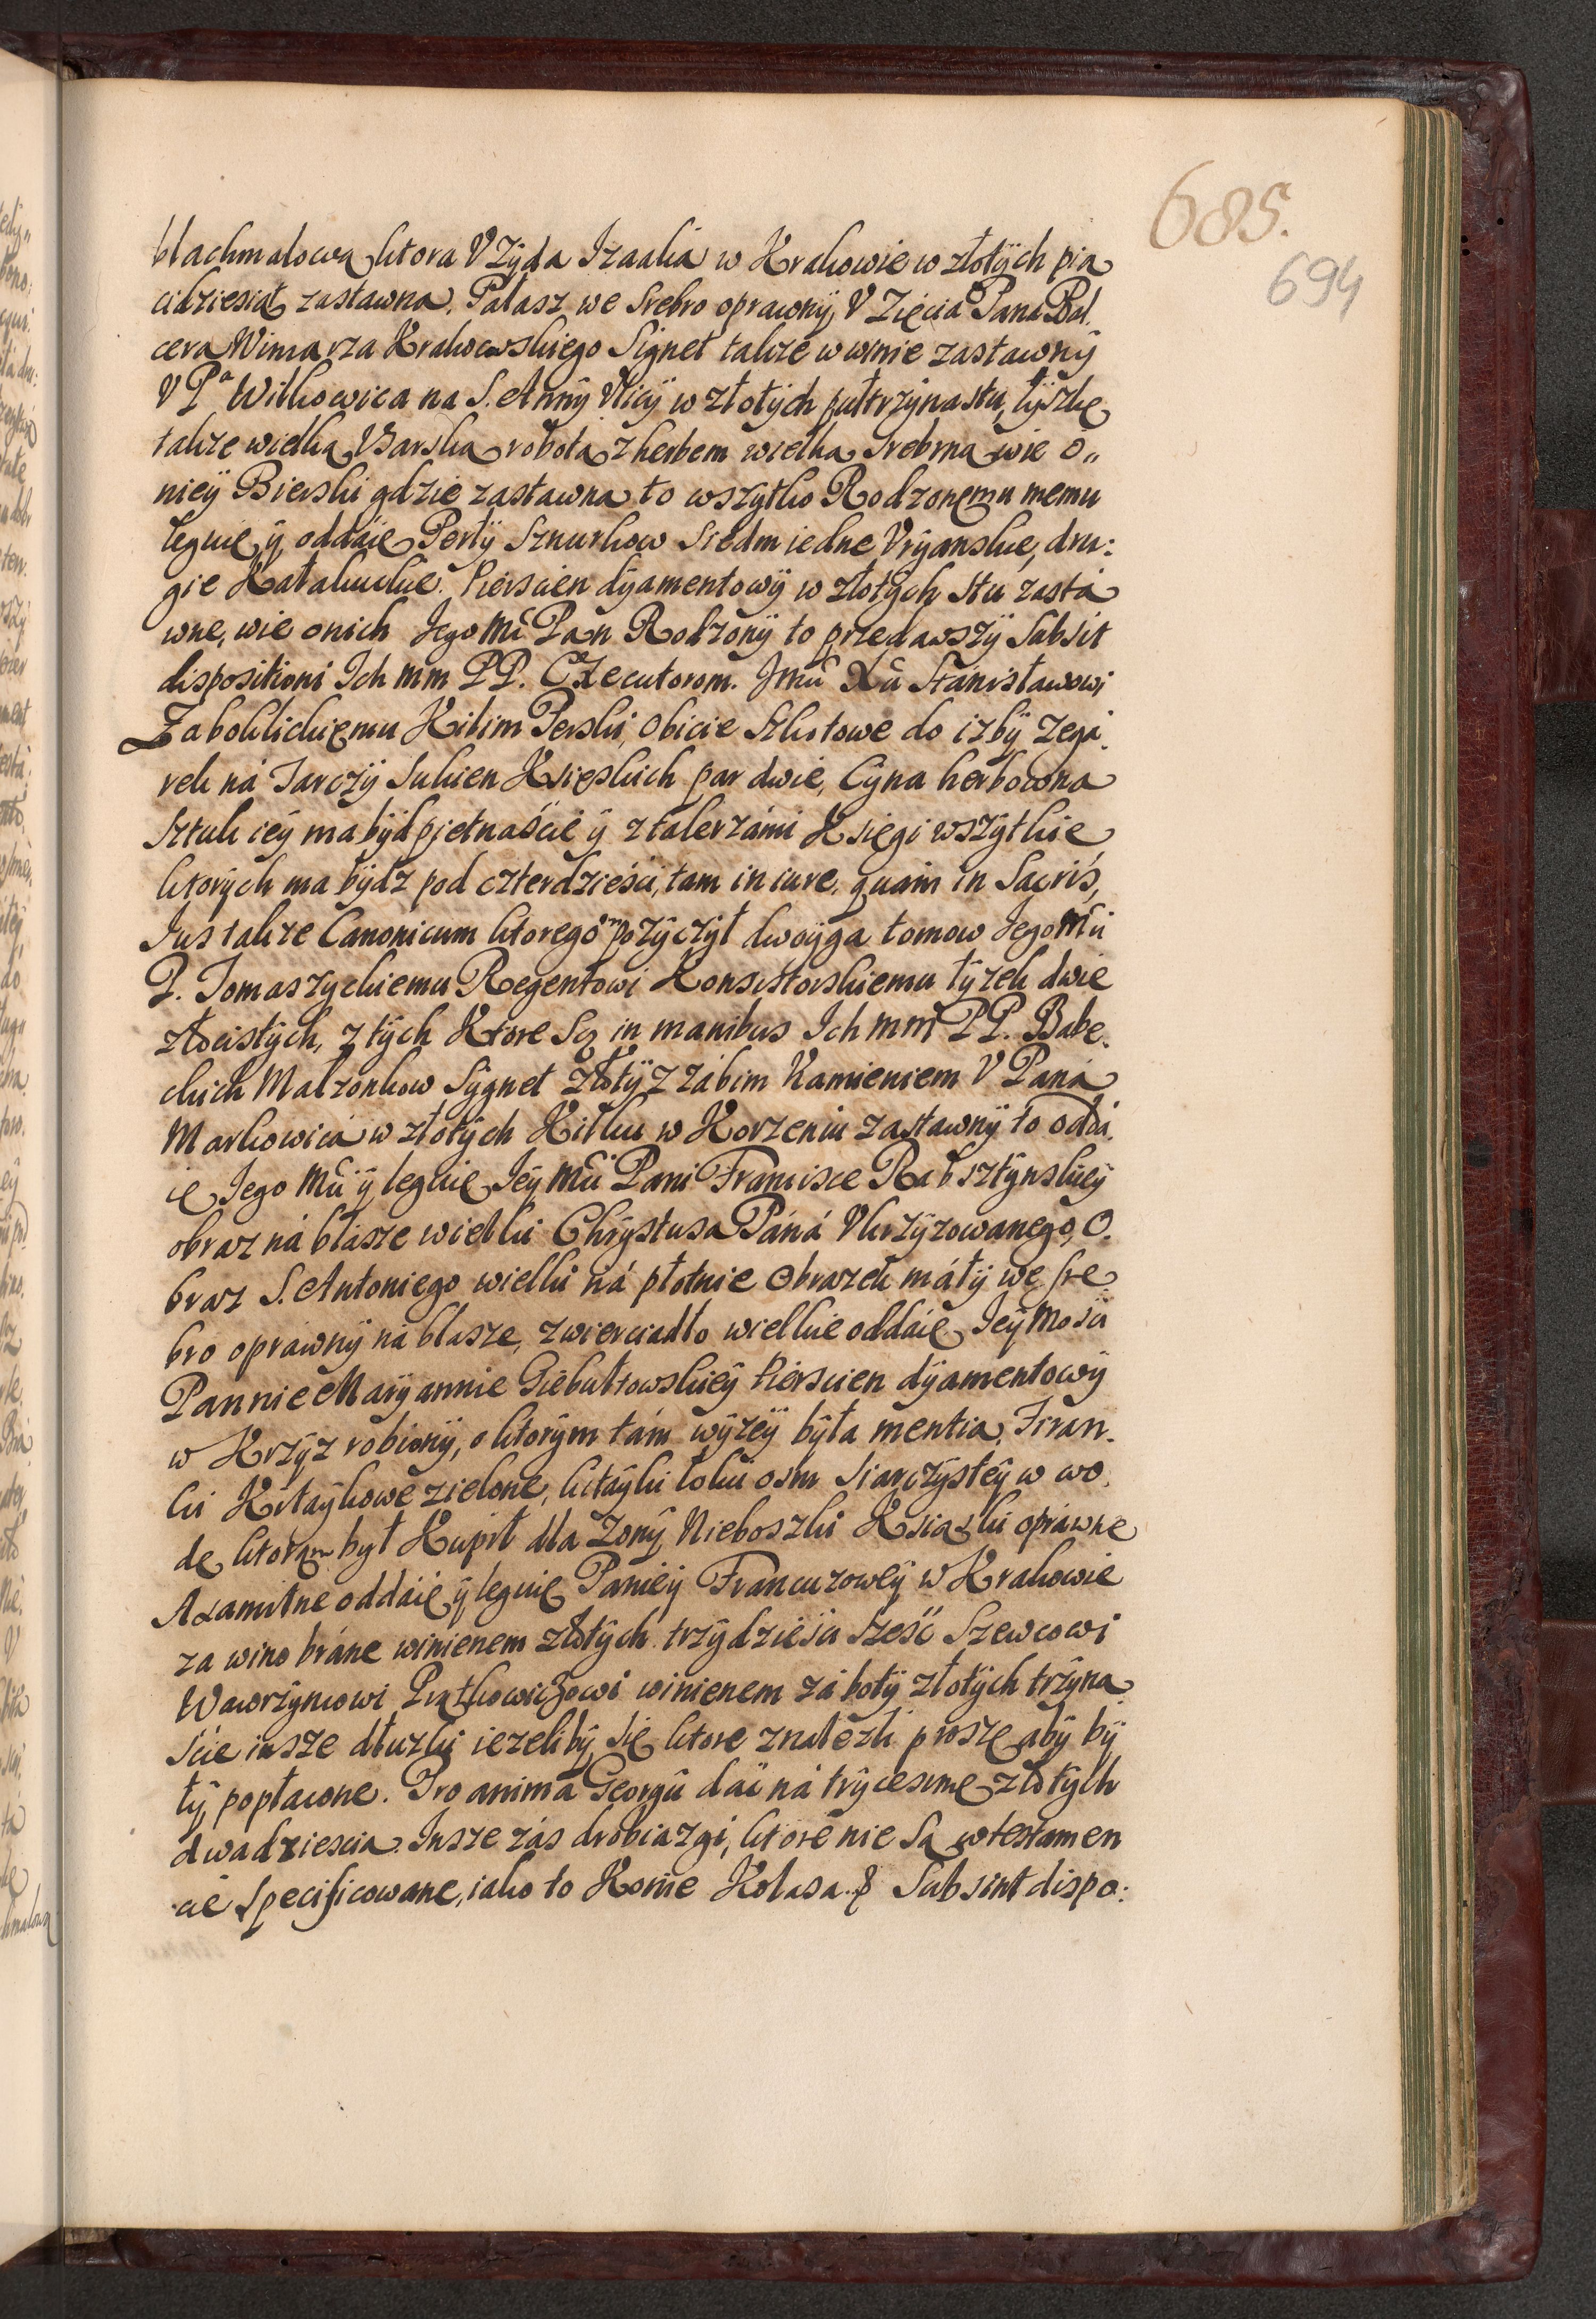 685.
694
blachmalowa ktora V Zyda Izaaka w Krakowie w złotych pia
cidziesiąt zastawna. Pałasz we srebro oprawny, V Zięcia Pana Bal.
cera Winiarza Krakowskiego Signet takze w winie zastawny
V Pa Witkowica na S. Anny Vlicy w złotych pułtrzynastu, łyszkę
takze wielka Barska robota z herbem wielka Srebrna wie o„
niey Bierski gdzie zastawna to wszytko Rodzonemu memu
leguie y oddaię Perły Sznurkow Siedm iedne Vryanskie, dru:
gie Kałakuckie. Pierscien dyamentowy w złotych stu zasta
wne, wie o nich Jego Mć Pan Rodzony to przedawszy Subsit
dispositioni Ich mm PP. Executorom. Jmci Xu Stanisławowi
Zaboklickiemu Kilim Perski, Obicie Szkotowe do izby Zega.
rek ná Tarczy Sukien Xsięskich par dwie, Cyna herbowna
Sztuk iey ma bydz piętnaście y z talerzámi Księgi wszytkie
ktorych ma bydz pod czterdzieści, tam in iure, quam in Sacris,
Jus takze Canonicum ktoregom pozyczył dwoyga tomow Jego Mci
P. Tomaszyckiemu Regentowi Konsistorskiemu łyzek dwie
złocistych, z tych Ktore Są in manibus Ich mm PP. Babe.
ckich Małzonkow Sygnet złoty z zábim Kamieniem V Paná
Markowica w złotych Kilku w Korzeniu zastawny to odda.
ię Jego Mci y leguię Jey Mci Pani Francisce Rabsztynskiey
obraz ná blásze wielki Chrystusa Páná Vkrzyzowanego, O.
braz S. Antoniego wielki ná płotnie Obrazek máły we sre
bro oprawny ná blasze, zwierciadło wielkie oddaię Jey Mosci
Pannie Maryannie Giebułtowskiey Pierscien dyamentowy
w Krzyz robiony, o ktorym tám wyzey była mentia, Firan.
ki Kitaykowe zielone, kitayki łokci osm Siarczystey w wo.
de ktorąm był Kupił dla Zony Nieboszki Ksiąszki opráwne
Axamitne oddaię y leguię Paniey Francuzowey w Krakowie
za wino bráne winienem złotych trzydzieści sześć Szewcowi
Wawrzyncowi Piątkowiczowi winienem zá boty złotych trzyna
scie insze dłuzki iezeliby się ktore znalezli proszę aby by
ły popłacone. Pro anima Georgii dáć ná trycesimę złotych
dwadziescia. Insze zás drobiazgi, ktore nie Są w testamen
cie Specificowane, iako to Konie Kolasa. & Subsint dispo: